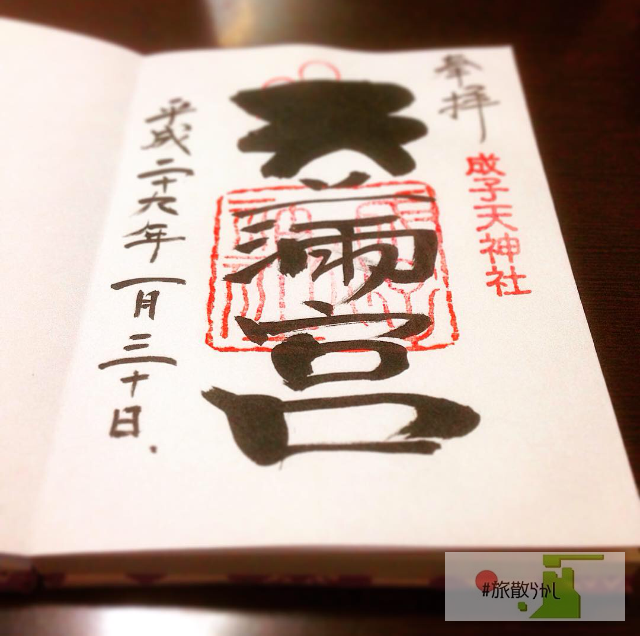 奉拝
成子天神社
天満宮
平成二十九年一月三十日
#旅散らかし